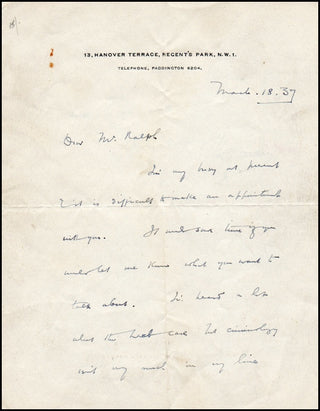 13, HANOVER TERRACE, REGENT'S PARK, N.W.1.
TELEPHONE, PADDINGTON 6204.
March. 18. 37
Dear Mr. Ralph
I'm busy at present
& it is difficult to make an appointment
with you. It would save time if you
would let me know what you want to
talk about. I'm
about the case but criminology
isn't very much in my line